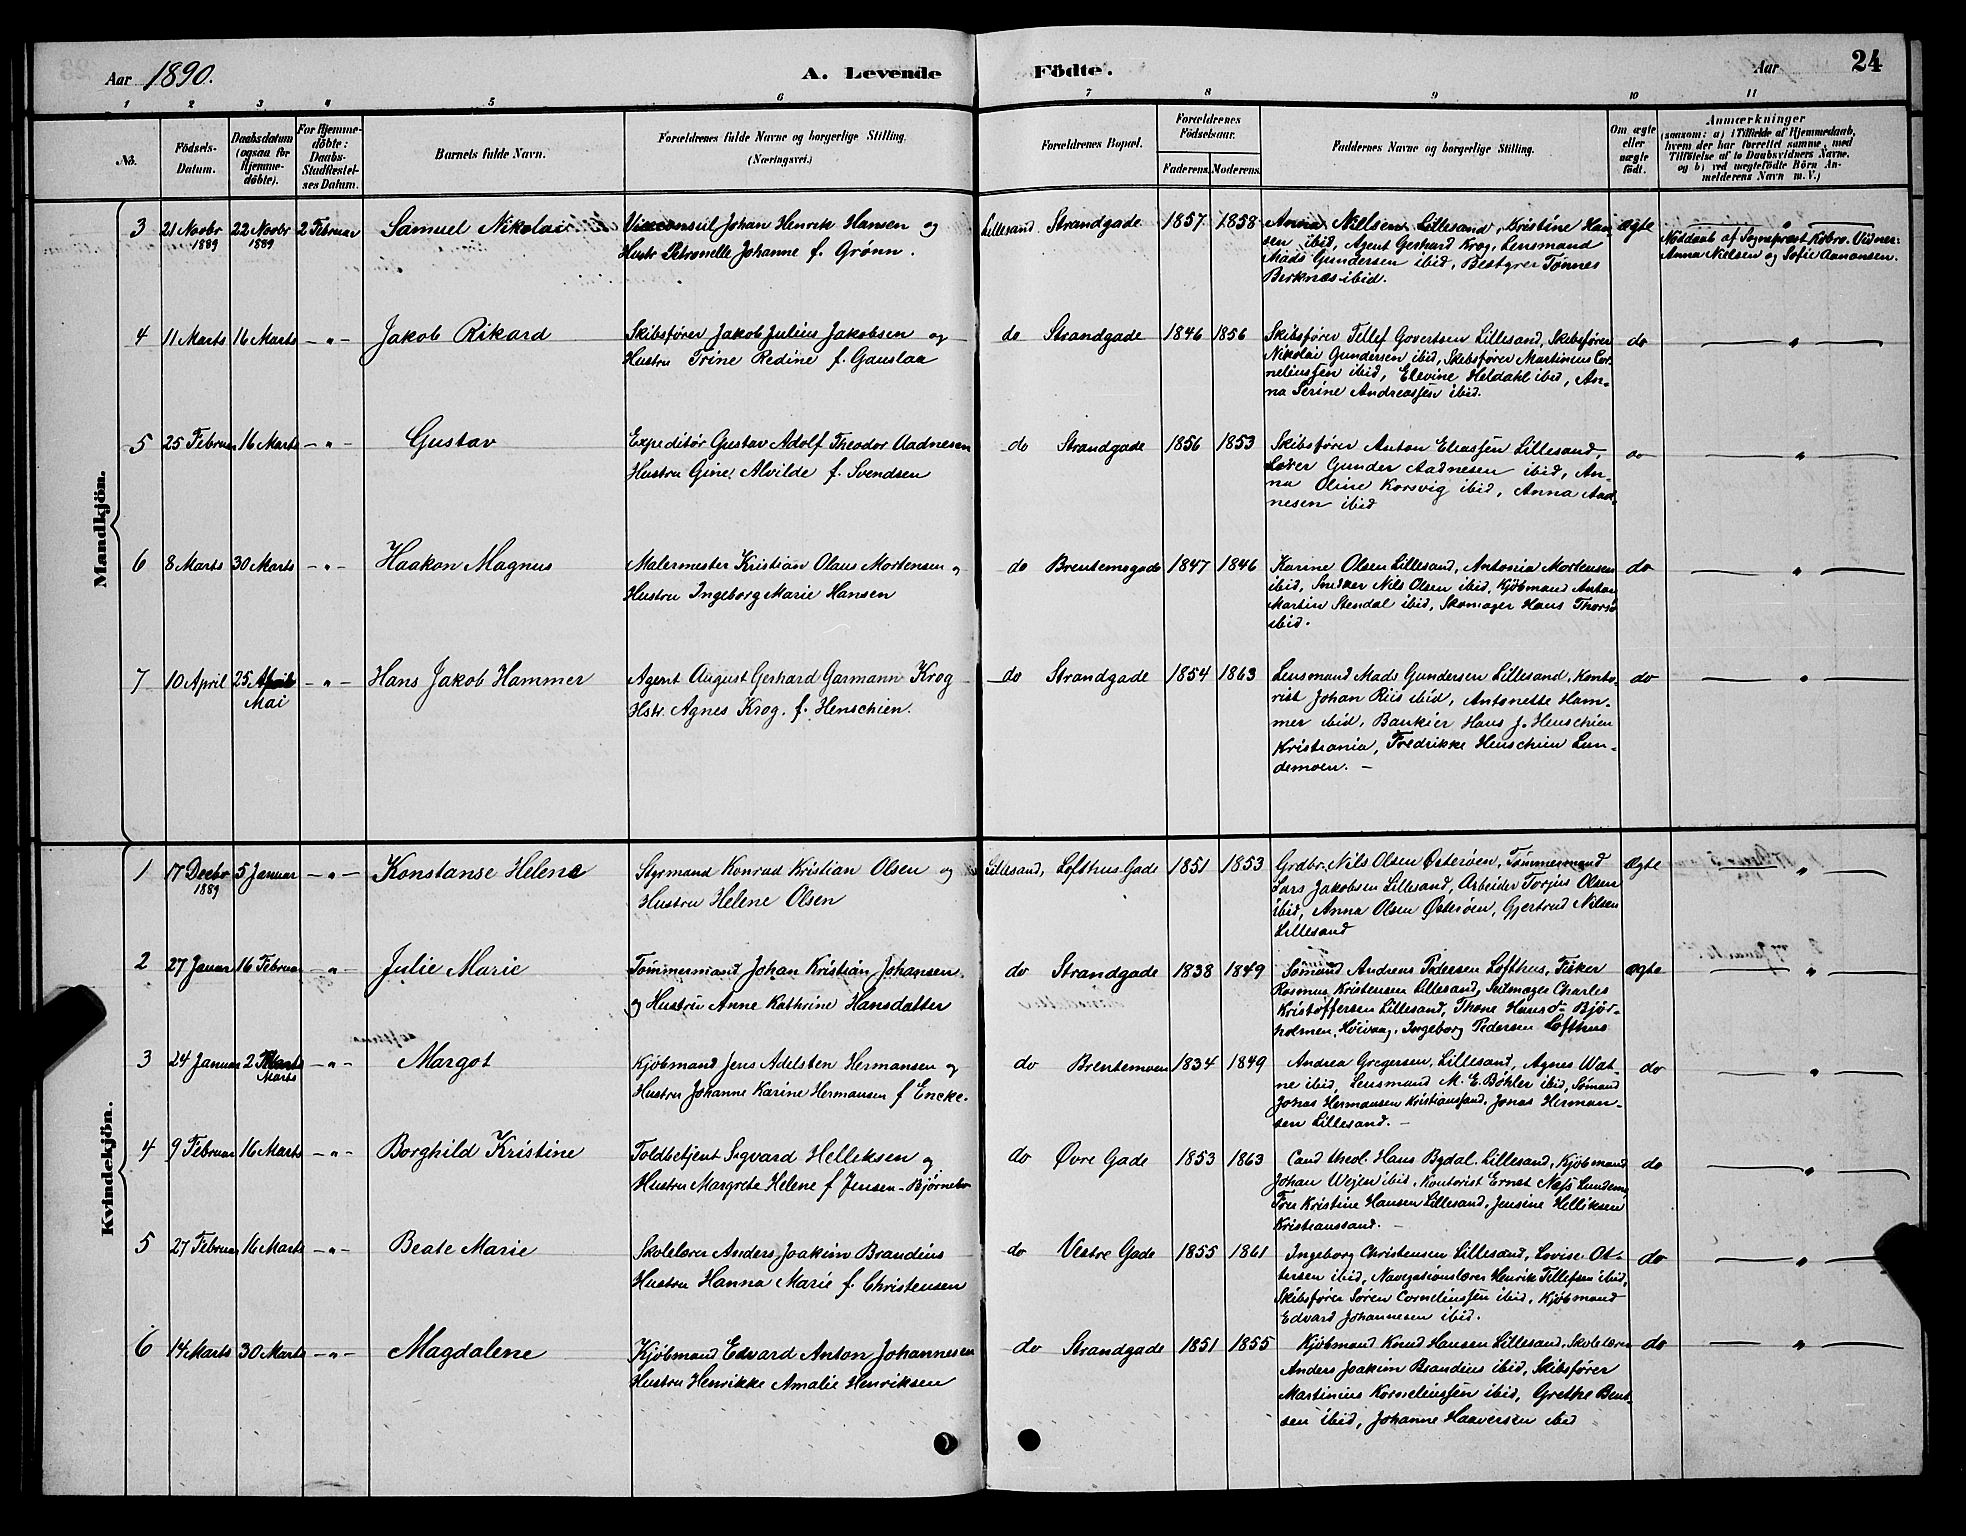 Aar 1890.
A. Levende Födte.
Aar
24
1 2 3 4 5 6 7 8 9 10 11
No.
Födsels-
Datum.
Daabsdatum
(ogsaa for
Hjemme-
döbte).
For Hjemme-
döbte:
Daabs-
Stadfæstel-
ses Datum.
Barnets fulde Navn.
Forældrenes fulde Navne og borgerlige Stilling.
(Næringsvei.)
Forældrenes Bopæl.
Forældrenes
Födselsaar.
Faderens. Moderens.
Faddernes Navne og borgerlige Stilling.
Om ægte
eller
uægte
födt.
Anmærkninger
(saasom: a) i Tilfælde af Hjemmedaab,
hvem der har forrettet samme, med
Tilföielse af to Daabsvidners Navne,
og b) ved uægtefödte Börn An-
melderens Navn m. V.)
Mandkjön.
3 21 Novbr 1889 22 Novbr 1889 2 Februar Samuel Nikolai
Viceconsul Johan Henrik Hansen og
Hustr. Petronelle Johanne f. Grönn.
Lillesand Strandgade 1857 1858
Anna Nielsen Lillesand, Kristine Han
sen ibid, Agent Gerhard Krog, Lensmand
Mads Gundersen ibid, Bestyrer Tönnes
Birknes ibid.
Ægte
Nöddaab af Sognepræst Kobro. Vidner:
Anna Nielsen og Sofie Aanonsen.
4 11 Marts 16 Marts -"- Jakob Rikard
Skibsfører Jakob Julius Jakobsen og
Hustru Trine Redine f. Gauslaa
do Strandgade 1846 1856
Skibsfører Tellef Govertsen Lillesand, Skibsfører
Nikolai Gundersen ibid, Skibsfører Martinius Cor
neliussen ibid, Elevine Heldahl ibid, An-
na Serine Andreassen ibid.
do "
5 25 Februar 16 Marts -"- Gustav
Expeditør Gustav Adolf Theodor Aadnesen
Hustru Gine Alvilde f. Svendsen
do Strandgade 1856 1853
Skibsfører Anton Eliassen Lillesand,
Gunder Aadnesen ibid, An-
na Oline Korsvig ibid, Anna Aad-
nesen ibid
do "
6 8 Marts 30 Marts -"- Haakon Magnus
Malermester Kristian Olaus Mortensen og
Hustru Ingeborg Marie Hansen
do Brentemsgade 1847 1846
Karine Olsen Lillesand, Antonia Mortensen
ibid, Snedker Nils Olsen ibid, Kjöbmand Anton
Martin Stendal ibid, Skomager Hans
ibid.
do "
7 10 April 25 April Mai -"- Hans Jakob Hammer
Agent August Gerhard Garmann Krog
Hstr. Agnes Krog. f. Henschien.
do Strandgade 1854 1863
Lensmand Mads Gundersen Lillesand, Konto-
rist Johan Riis ibid, Antonette Ham-
mer ibid, Bankier Hans J. Henschien
Kristiania, Fredrikke Henschien Lun-
demoen. -
do "
Kvindekjön.
1 17 Decbr 1889 5 Januar -"- Konstanse Helene
Styrmand Konrad Kristian Olsen og
Hustru Helene Olsen
Lillesand, Lofthus Gade 1851 1853
Grdbr. Nils Olsen Østerøen, Tømmermand
Lars Jakobsen Lillesand, Arbeider Torjus Olsen
ibid, Anna Olsen Østerøen, Gjertrud Nilsen
Lillesand
Ægte "
2 27 Januar 16 Februar -"- Julie Marie
Tømmermand Johan Kristian Johansen
og Hustru Anne Kathrine Hansdatter
do Strandgade 1838 1849
Sømand Andreas Pedersen Lofthus, Fisker
Rasmus Kristensen Lillesand, Seilmager Charles
Kristoffersen Lillesand, Thone Hansd. Björ-
holmen, Høivaag, Ingeborg Pedersen Lofthus
Ægte "
3 24 Januar 2 Marts -"- Margot
Kjöbmand Jens Adelsten Hermansen og
Hustru Johanne Karine Hermansen f Encke.
do Brentemoen 1834 1849
Andrea Gregersen, Lillesand, Agnes Wat-
ne ibid, Lensmand M. E. Böhler ibid, Sömand
Johas Hermansen Kristianssand, Jonas Herman-
sen Lillesand. -
do "
4 9 Februar 16 Marts -"- Borghild Kristine
Toldbetjent Sigvard Helliksen og
Hustru Margrete Helene f Jensen-Bjørnebo
do Øvre Gade 1853 1863
Cand theol. Hans Bydal. Lillesand, Kjöbmand
Johan Wejen ibid, Kontorist Ernst Næss Lundemo,
Fru Kristine Hansen Lillesand, Jensine Helliksen
Kristianssand. -
do "
5 27 Februar 16 Marts -"- Beate Marie
Skolelærer Anders Joakim Brandeius
Hustru Hanna Marie f. Christensen
do Vestre Gade 1855 1861
Ingeborg Christensen Lillesand, Lovise Ot-
tersen ibid, Navigasionslærer Henrik Tellefsen ibid,
Skibsfører Sören Corneliussen ibid, Kjöbmand
Edvard Johannesen ibid.
do "
6 14 Marts 30 Marts -"- Magdalene
Kjöbmand Edvard Anton Johannesen
Hustru Henrikke Amalie Henriksen
do Strandgade 1851 1855
Kjöbmand Knud Hansen Lillesand, Skolelærer
Anders Joakim Brandeius ibid, Skibsfører
Martinius Korneliussen ibid, Grethe Bent-
sen ibid, Johanne Haaversen ibid
do "